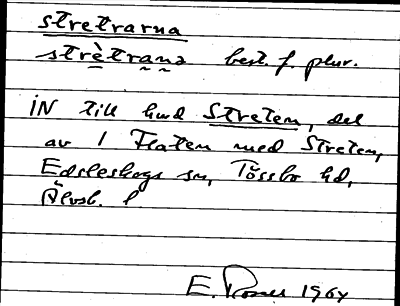 stretrarna
strètrana best. f. plur.
IN till hmd Streten, del
av 1 Flaten med Streten,
Edsleskogs sn, Tössbo hd,
Älvsb. l
E. 1964